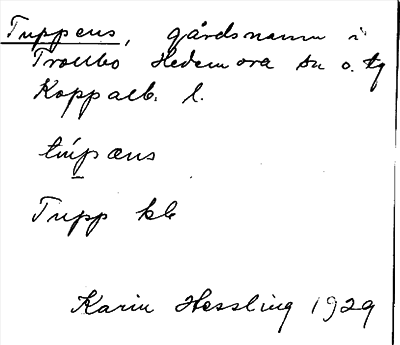 Tuppens, gårdsnamn i
Trollbo Hedemora sn o. tg
Kopparb. l.
tupæns
Tupp kb
Karin Hessling 1929